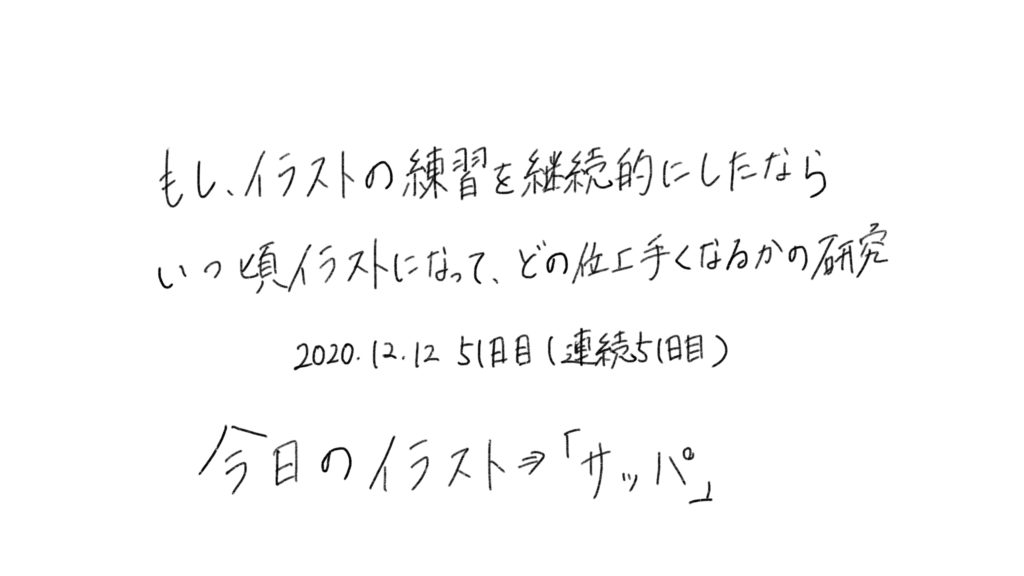 もし、イラストの練習を継続的にしたなら
いつ頃イラストになって、どの位上手くなるかの研究
2020.12.12 51日目(連続51日目)
今日のイラスト⇒「サッパ」